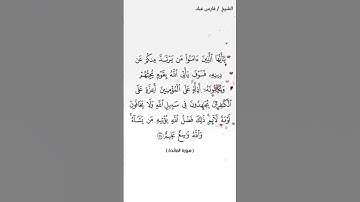 الشيخ / فارس عباد
يَـٰٓأَيُّهَا ٱلَّذِينَ ءَامَنُوا۟ مَن يَرْتَدَّ مِنكُمْ عَن
دِينِهِۦ فَسَوْفَ يَأْتِى ٱللَّهُ بِقَوْمٍ يُحِبُّهُمْ
وَيُحِبُّونَهُۥٓ أَذِلَّةٍ عَلَى ٱلْمُؤْمِنِينَ أَعِزَّةٍ عَلَى
ٱلْكَـٰفِرِينَ يُجَـٰهِدُونَ فِى سَبِيلِ ٱللَّهِ وَلَا يَخَافُونَ
لَوْمَةَ لَآئِمٍ ۚ ذَٰلِكَ فَضْلُ ٱللَّهِ يُؤْتِيهِ مَن يَشَآءُ ۚ
وَٱللَّهُ وَٰسِعٌ عَلِيمٌ ۝٥٤
( سورة المائدة )